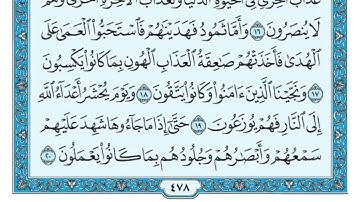 عَذَابَ ٱلْخِزْيِ فِي ٱلْحَيَوٰةِ ٱلدُّنْيَا وَلَعَذَابُ ٱلْأَخِرَةِ أَخْزَىٰ وَهُمْ
لَا يُنصَرُونَ ١٦ وَأَمَّا ثَمُودُ فَهَدَيْنَٰهُمْ فَٱسْتَحَبُّوا۟ ٱلْعَمَىٰ عَلَى
ٱلْهُدَىٰ فَأَخَذَتْهُمْ صَٰعِقَةُ ٱلْعَذَابِ ٱلْهُونِ بِمَا كَانُوا۟ يَكْسِبُونَ
١٧ وَنَجَّيْنَا ٱلَّذِينَ ءَامَنُوا۟ وَكَانُوا۟ يَتَّقُونَ ١٨ وَيَوْمَ يُحْشَرُ أَعْدَآءُ ٱللَّهِ
إِلَى ٱلنَّارِ فَهُمْ يُوزَعُونَ ١٩ حَتَّىٰٓ إِذَا مَا جَآءُوهَا شَهِدَ عَلَيْهِمْ
سَمْعُهُمْ وَأَبْصَٰرُهُمْ وَجُلُودُهُم بِمَا كَانُوا۟ يَعْمَلُونَ ٢٠
٤٧٨